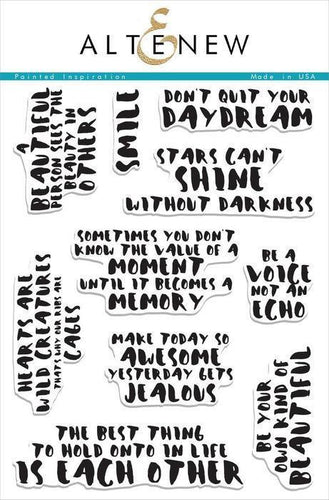 ALTENEW
Painted Inspiration
Made in USA
A
BEAUTIFUL
PERSON SEES THE
BEAUTY IN
OTHERS
SMILE
DON'T QUIT YOUR
DAYDREAM
STARS CAN'T
SHINE
WITHOUT DARKNESS
SOMETIMES YOU DON'T
KNOW THE VALUE OF A
MOMENT
UNTIL IT BECOMES A
MEMORY
BE A
VOICE
NOT AN
ECHO
HEARTS ARE
WILD CREATURES
THAT'S WHY OUR RIBS ARE
CAGES
MAKE TODAY SO
AWESOME
YESTERDAY GETS
JEALOUS
BE YOUR
OWN KIND OF
BEAUTIFUL
THE BEST THING
TO HOLD ONTO IN LIFE
IS EACH OTHER